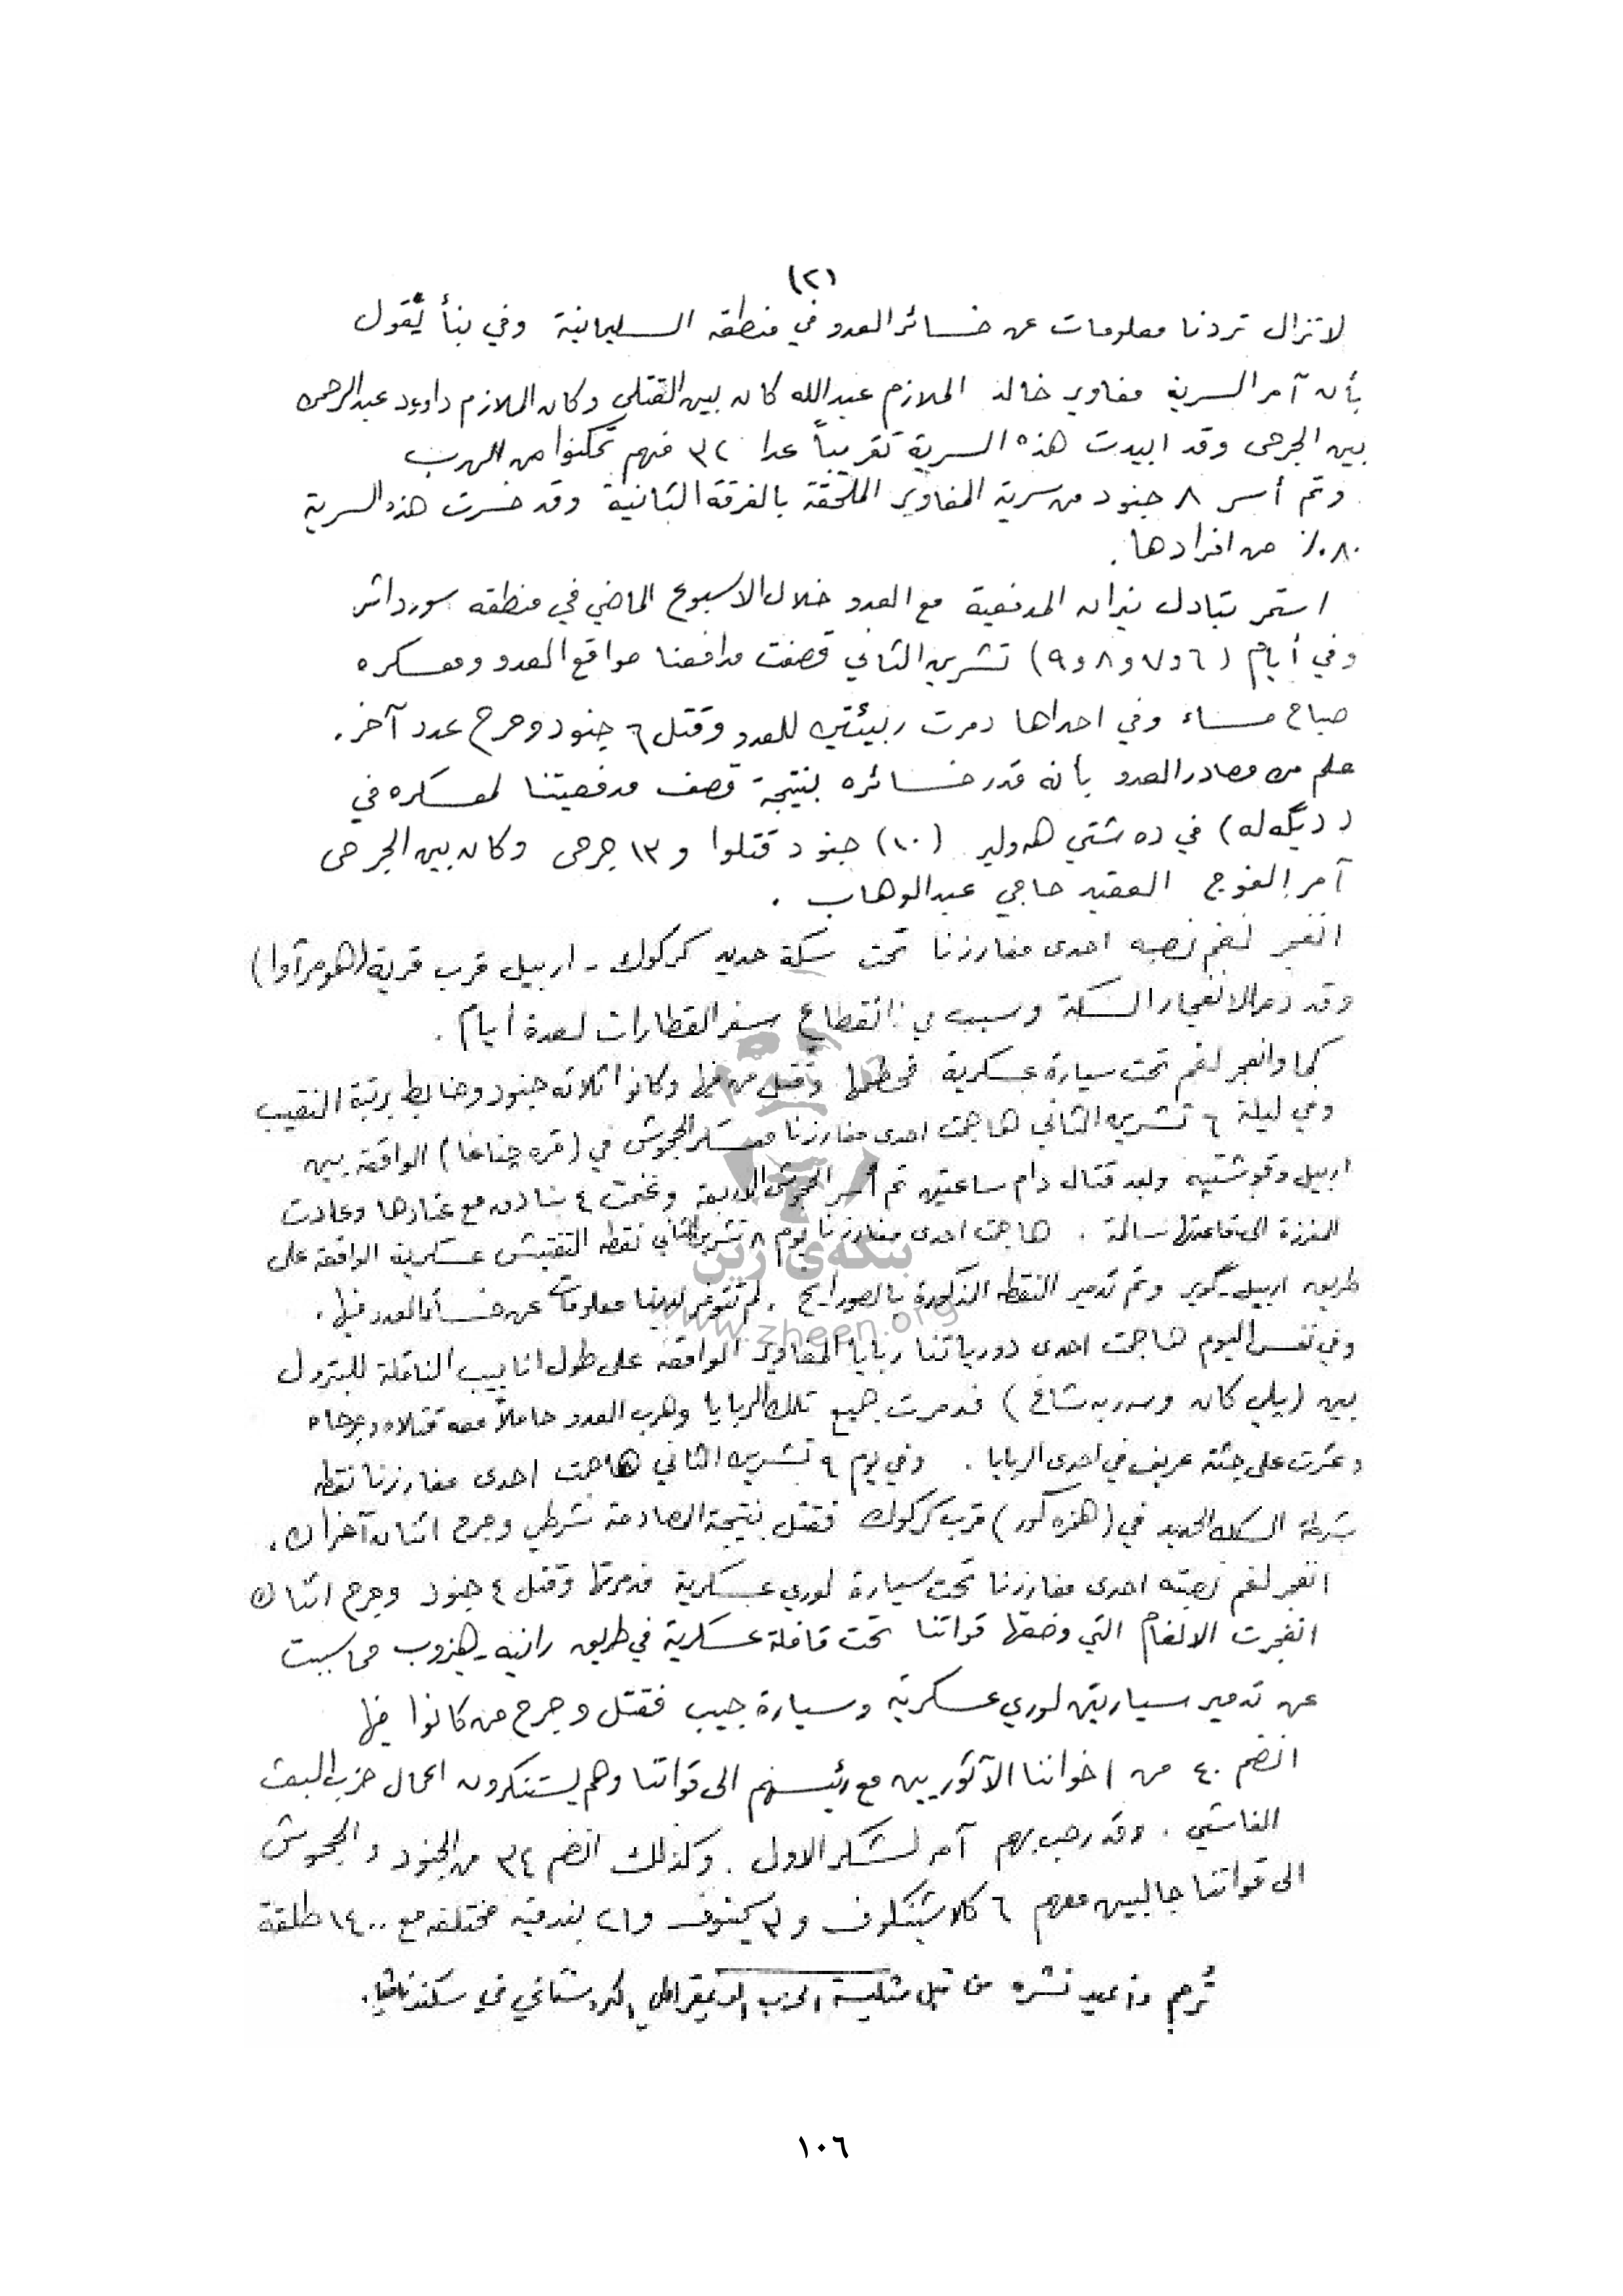 (٢)
لاتزال تردنا معلومات عن خسائر العدو في منطقة السليمانية وفي نبأ يقول
بأن آمر السرية مغاوير خالد الملازم عبدالله كان بين القتلى وكان الملازم داوود عبدالرحمن
بين الجرحى وقد ابيدت هذه السرية تقريباً عدا ٣٢ منهم تمكنوا من الهرب
وتم أسر ٨ جنود من سرية المغاوير الملحقة بالفرقة الثانية وقد خسرت هذه السرية
٨٠٪ من افرادها .
استمر تبادل نيران المدفعية مع العدو خلال الاسبوع الماضي في منطقة سورداش
وفي أيام (٦ و٧ و٨ و٩) تشرين الثاني قصفت مدافعنا مواقع العدو ومعسكره
صباح مساء وفي احداها دمرت ربيئتين للعدو وقتل ٦ جنود وجرح عدد آخر .
علم من مصادر العدو بأنه قدر خسائره بنتيجة قصف مدفعيتنا لمعسكره في
( ديگه له ) في ده شتي هه ولير (١٠) جنود قتلوا و ١٣ جرحى وكان بين الجرحى
آمر الفوج العقيد حاجي عبدالوهاب .
انفجر لغم نصبه احدى مفارزنا تحت سكة حديد كركوك - اربيل قرب قرية (هومرآوا)
وقد دمر الانفجار السكة وسبب في انقطاع سفر القطارات لعدة أيام .
كما وانفجر لغم تحت سيارة عسكرية فحطمها وقتل من فيها وكانوا ثلاثة جنود وضابط برتبة النقيب
وفي ليلة ٦ تشرين الثاني هاجمت احدى مفارزنا معسكر الجحوش في (قره چناغا) الواقعة بين
اربيل وقوشتپه وبعد قتال دام ساعتين تم أسر الجحوش الاربعة وغنمت ٤ بنادق مع عتادها وعادت
المفرزة الى قاعدتها سالمة . هاجمت احدى مفارزنا يوم ٨ تشرين الثاني نقطة التفتيش عسكرية الواقعة على
طريق اربيل - گوير وتم تدمير النقطة المذكورة بالصورايخ . لم تتوفر لدينا معلومات عن خسائر العدو فيها .
وفي نفس اليوم هاجمت احدى دورياتنا ربايا المغاوير الواقعة على طول انابيب الناقلة للبترول
بين ( يلي كان وسه ربه شاخ ) فدمرت جميع تلك الربايا وهرب العدو حاملاً معه قتلاه وجرحاه
وعثرت على جثة عريف في احدى الربايا . وفي يوم ٩ تشرين الثاني هاجمت احدى مفارزنا نقطة
شرطة السكك الحديد في (هنزه كور) قرب كركوك فقتل بنتيجة المصادمة شرطي وجرح اثنان آخران .
انفجر لغم نصبته احدى مفارزنا تحت سيارة لوري عسكرية فدمرتها وقتل ٤ جنود وجرح اثنان
انفجرت الالغام التي وضعتها قواتنا تحت قافلة عسكرية في طريق رانيه - هيزوب مما سببت
عن تدمير سيارتين لوري عسكرية وسيارة جيب فقتل وجرح من كانوا فيها
انضم ٤٠ من اخواننا الآثوريين مع رئيسهم الى قواتنا وهم يستنكرون اعمال حزب البعث
الفاشي . وقد رحب بهم آمر لشكر الاول . وكذلك انضم ٣٤ من الجنود والجحوش
الى قواتنا جالبين معهم ٦ كلاشينكوف و٣ سيمينوف و٢١ بندقية مختلفة مع ١٤٠٠ طلقة
تُرجم وأعيد نشره من قبل ممثلية الحزب الديمقراطي الكردستاني في سكندنافيا .
بنكەی ژین
www.zheen.org
١٠٦